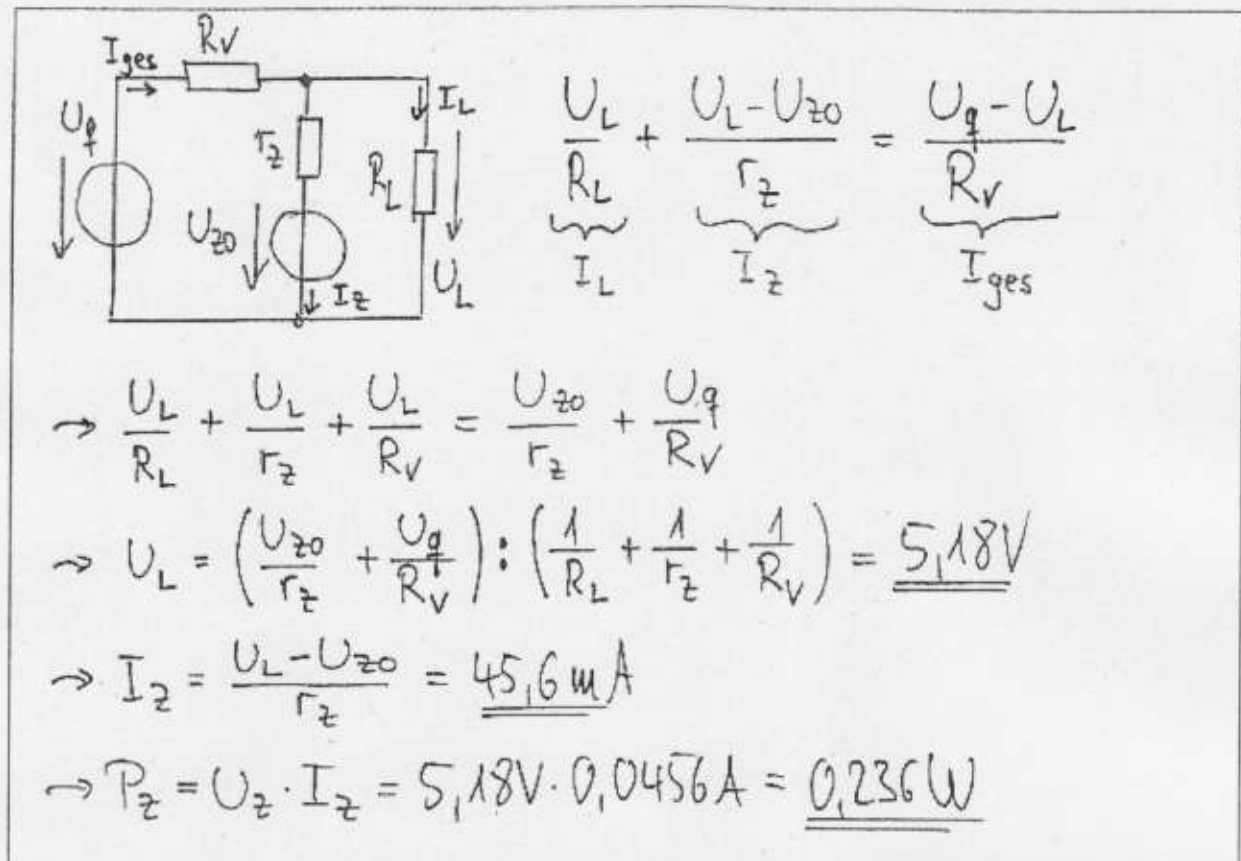 I_ges R_V
U_q r_z I_L
R_L
U_z0 I_z U_L
U_L/R_L + (U_L - U_z0)/r_z = (U_q - U_L)/R_V
I_L I_z I_ges
→ U_L/R_L + U_L/r_z + U_L/R_V = U_z0/r_z + U_q/R_V
→ U_L = (U_z0/r_z + U_q/R_V) : (1/R_L + 1/r_z + 1/R_V) = 5,18V
→ I_z = (U_L - U_z0)/r_z = 45,6 mA
→ P_z = U_z · I_z = 5,18V · 0,0456A = 0,236W